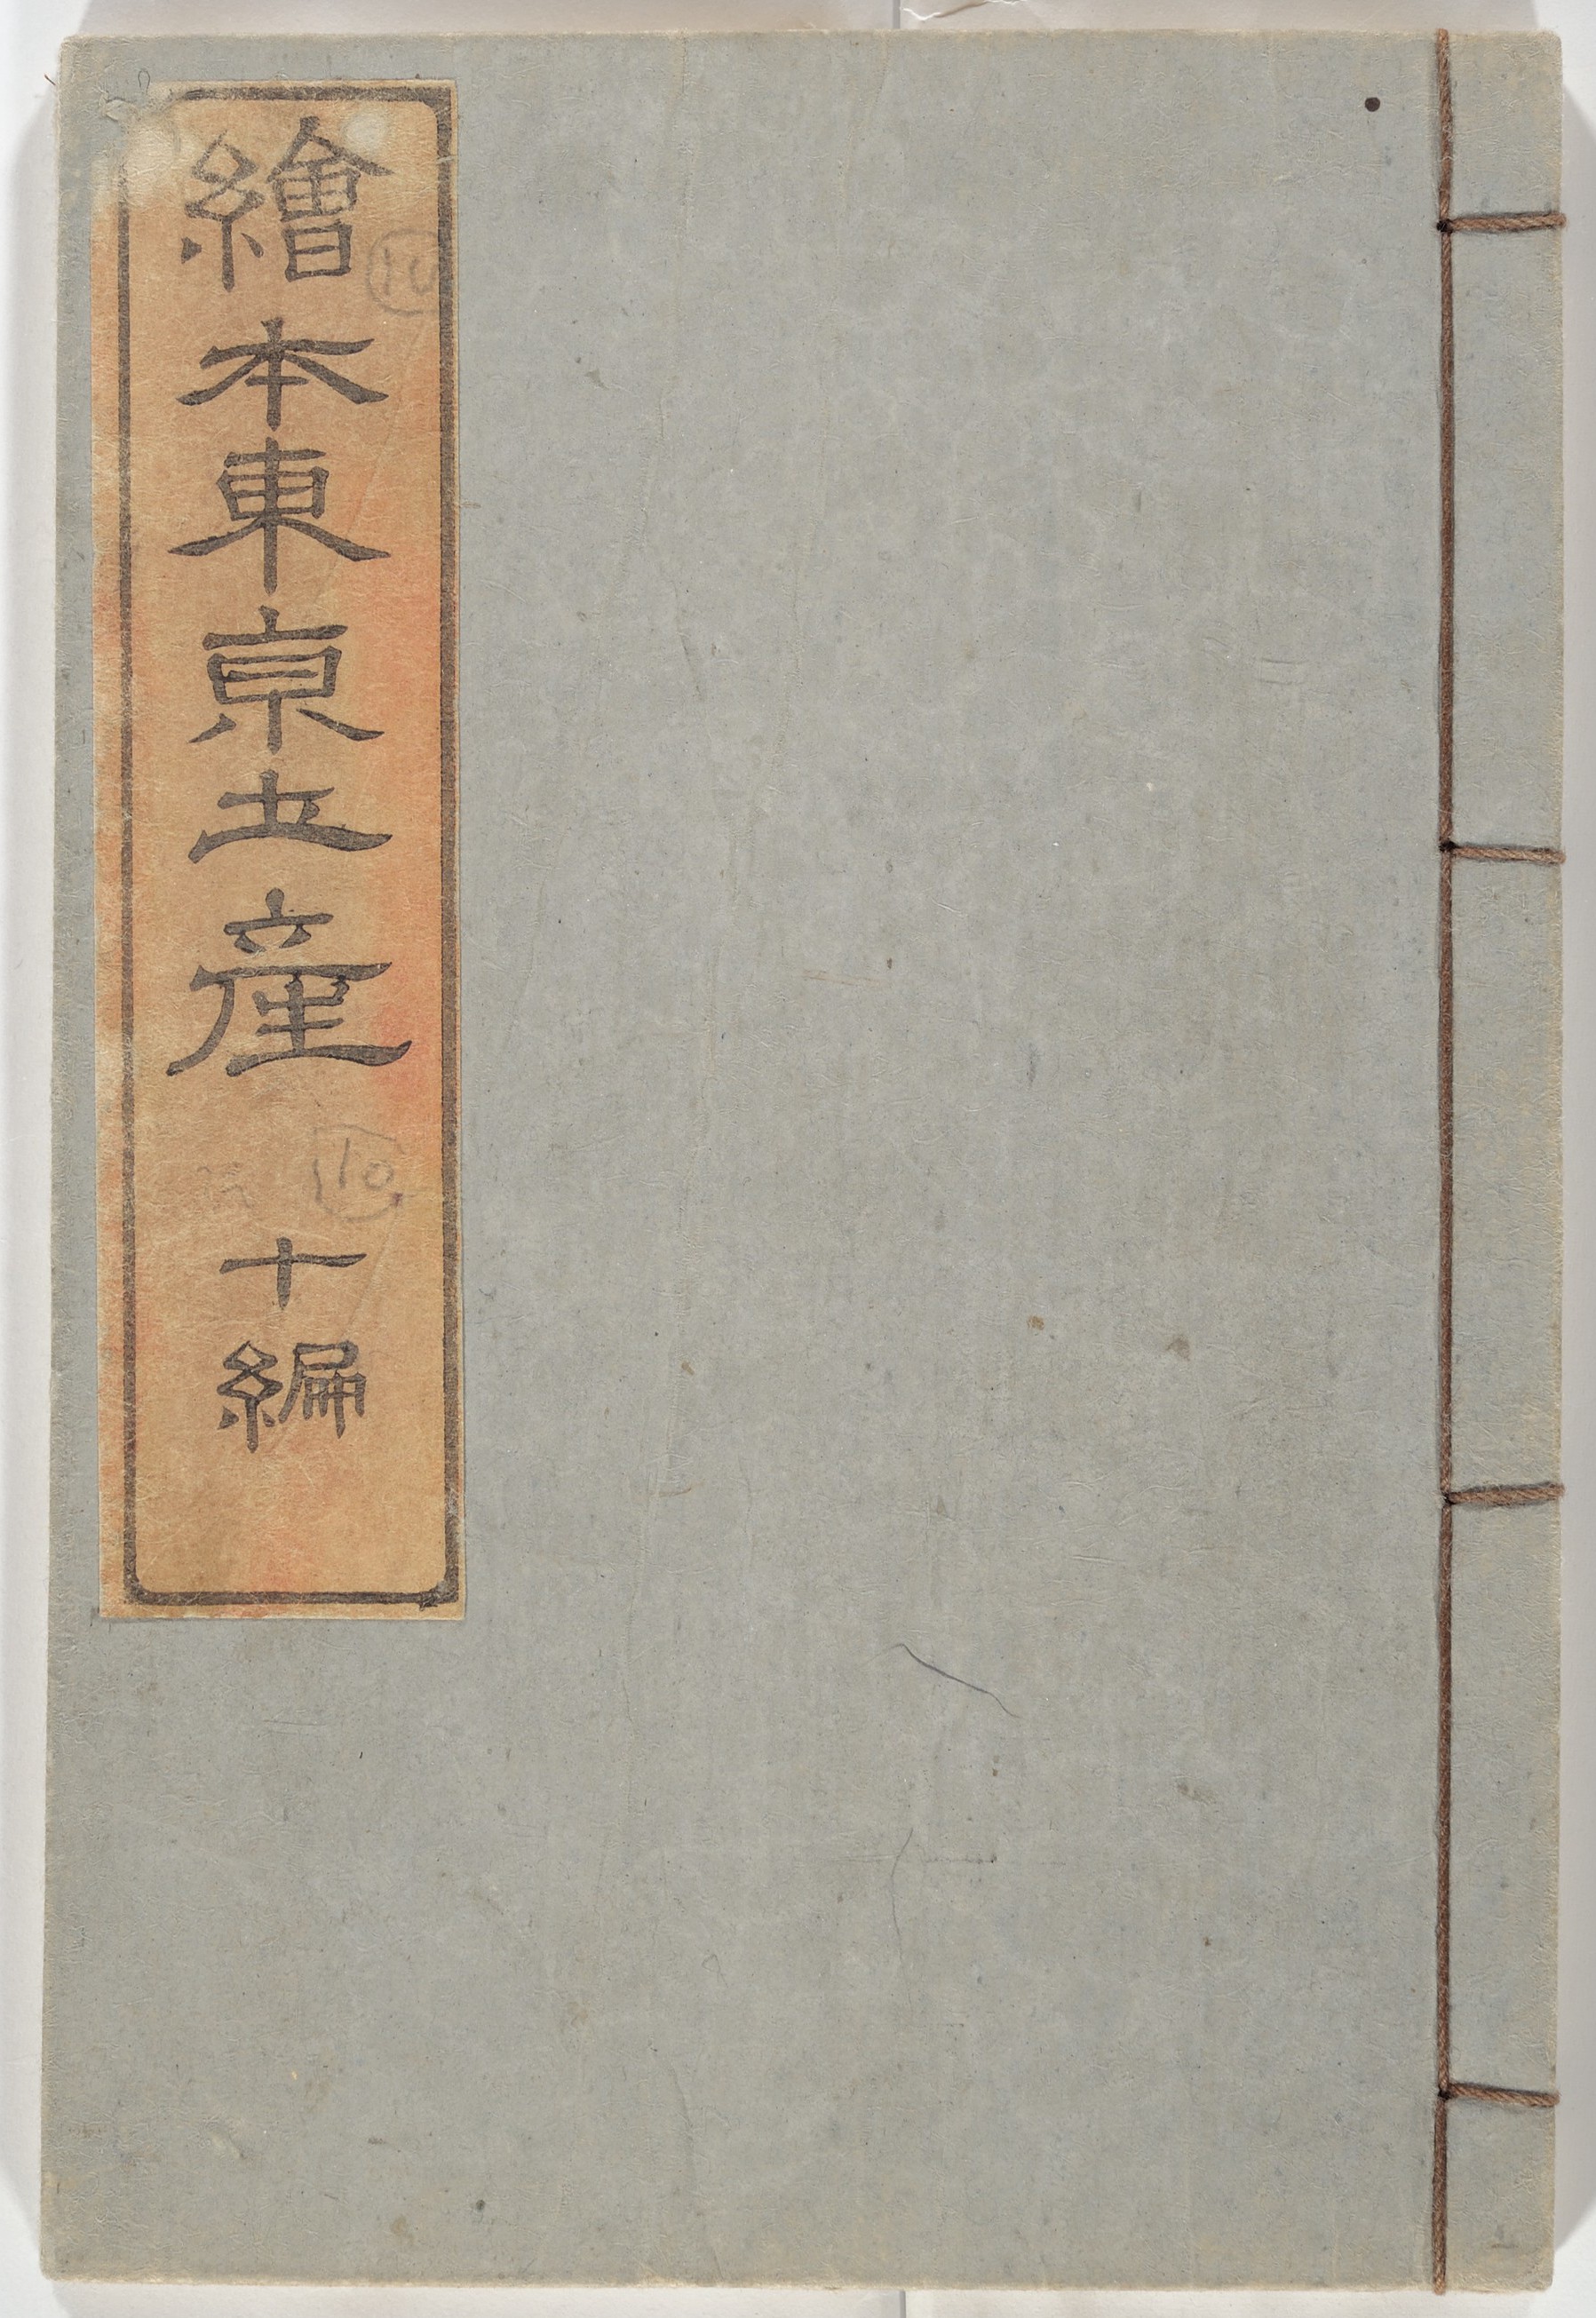 繪本東亰圡産 十編
10
10